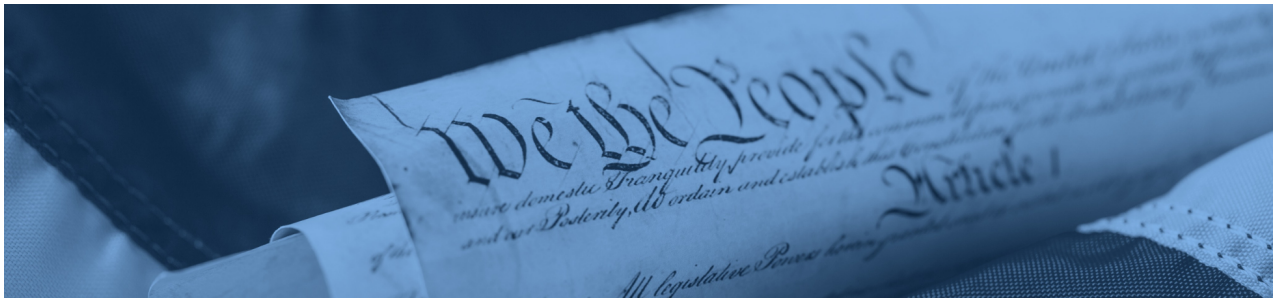 We the People of the United States
insure domestic Tranquility, provide for the common defence, promote the general
and our Posterity, do ordain and establish this Constitution for the United States
Article I
All legislative Powers herein granted
of the